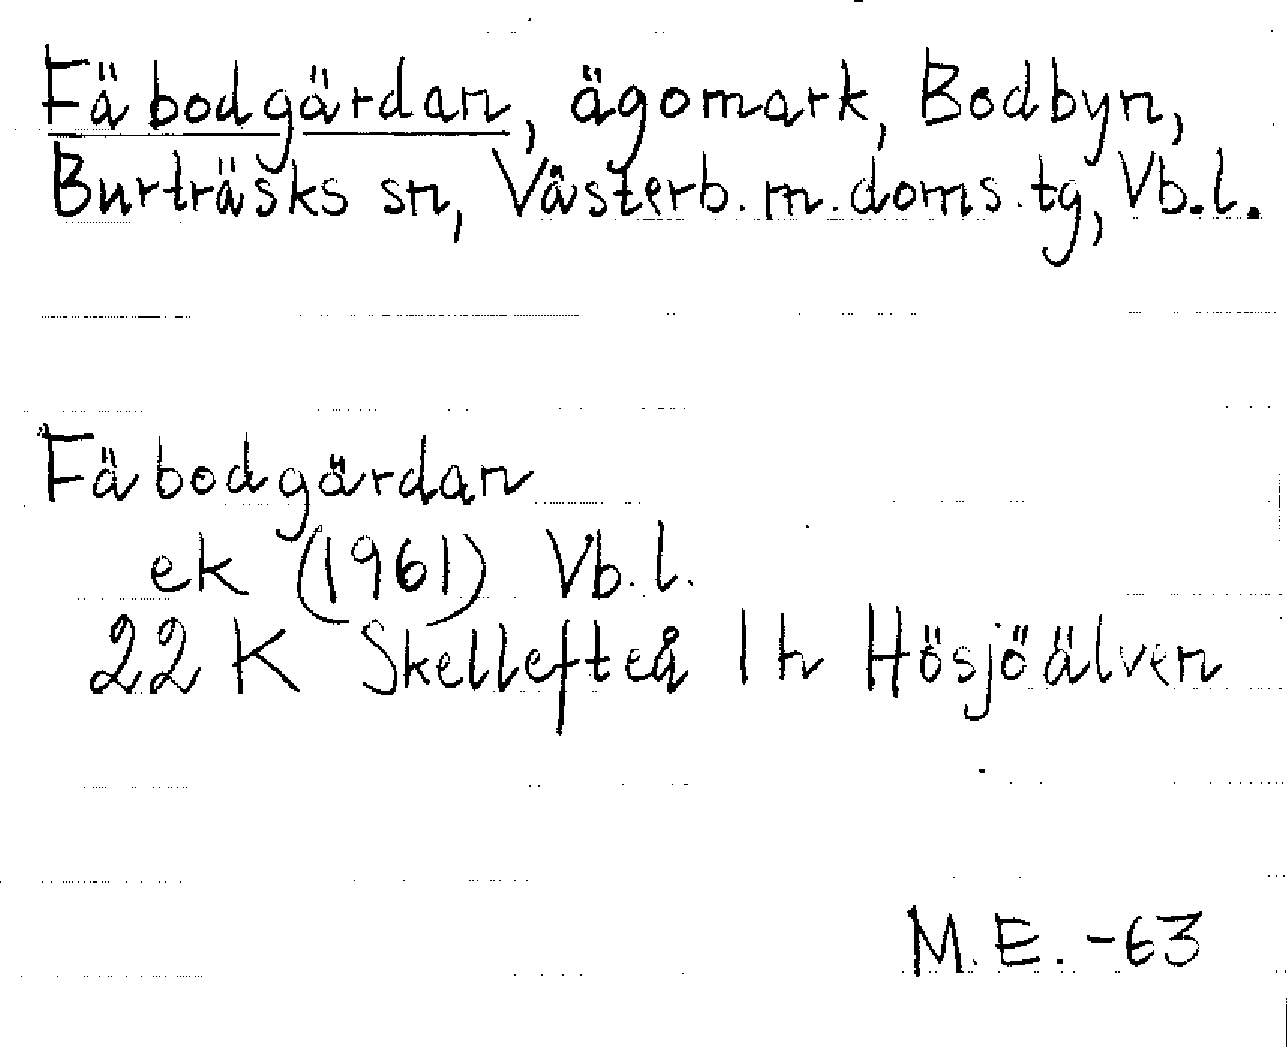 Fäbodgärdan, ägomark, Bodbyn,
Burträsks sn, Västerb.m.doms.tg, Vb.l.
Fäbodgärdan
ek (1961) Vb.l.
22 K Skellefteå 1 h Hösjöälven
M.E. -63